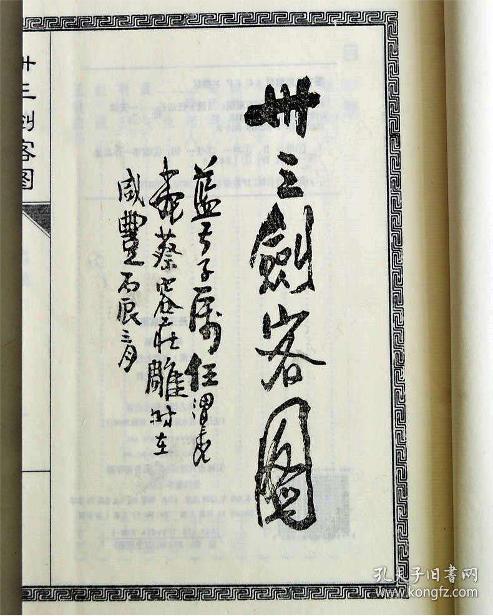 卅三劍客圖
藍子屬任渭長
畫蔡容莊雕時在
咸豐丙辰月
卅三剑客图
孔夫子旧书网
www.kongfz.com